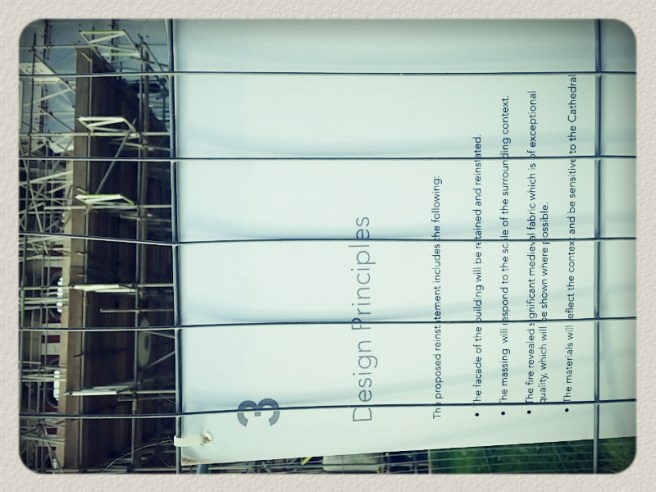 3
Design Principles
The proposed reinstatement includes the following:
• The facade of the building will be retained and reinstated.
• The massing will respond to the scale of the surrounding context.
• The fire revealed significant medieval fabric which is of exceptional
quality, which will be shown where possible.
• The materials will reflect the context and be sensitive to the Cathedral